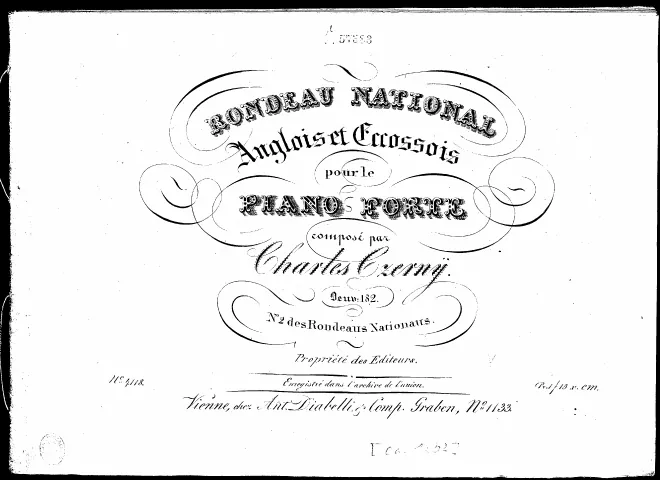 RONDEAU NATIONAL
Anglois et Eccossois
pour le
PIANO FORTE
composé par
Charles Czernÿ.
Oeuv. 182.
Nº 2 des Rondeaus Nationaus.
Propriété des Editeurs.
Enregistré dans l'archive de l'union.
Nº 4118.
Vienne, chez Ant. Diabelli & Comp. Graben, Nº 1133.